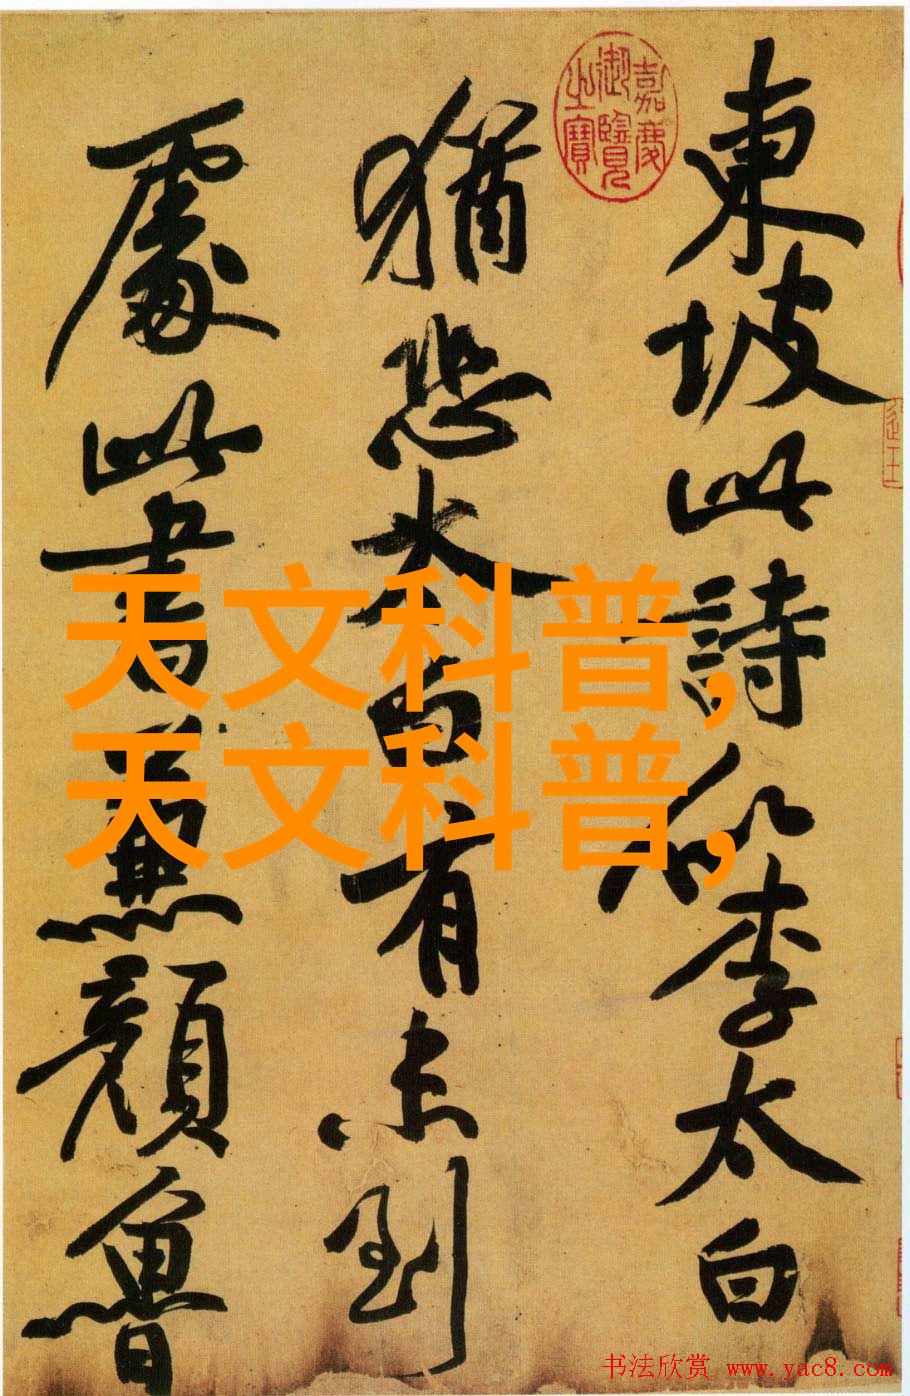 東坡此詩似李太白
猶恐太白有未到
處此書兼顏魯
嘉慶
御覽
之寶
天文科普,
天文科普,
书法欣赏 www.yac8.com